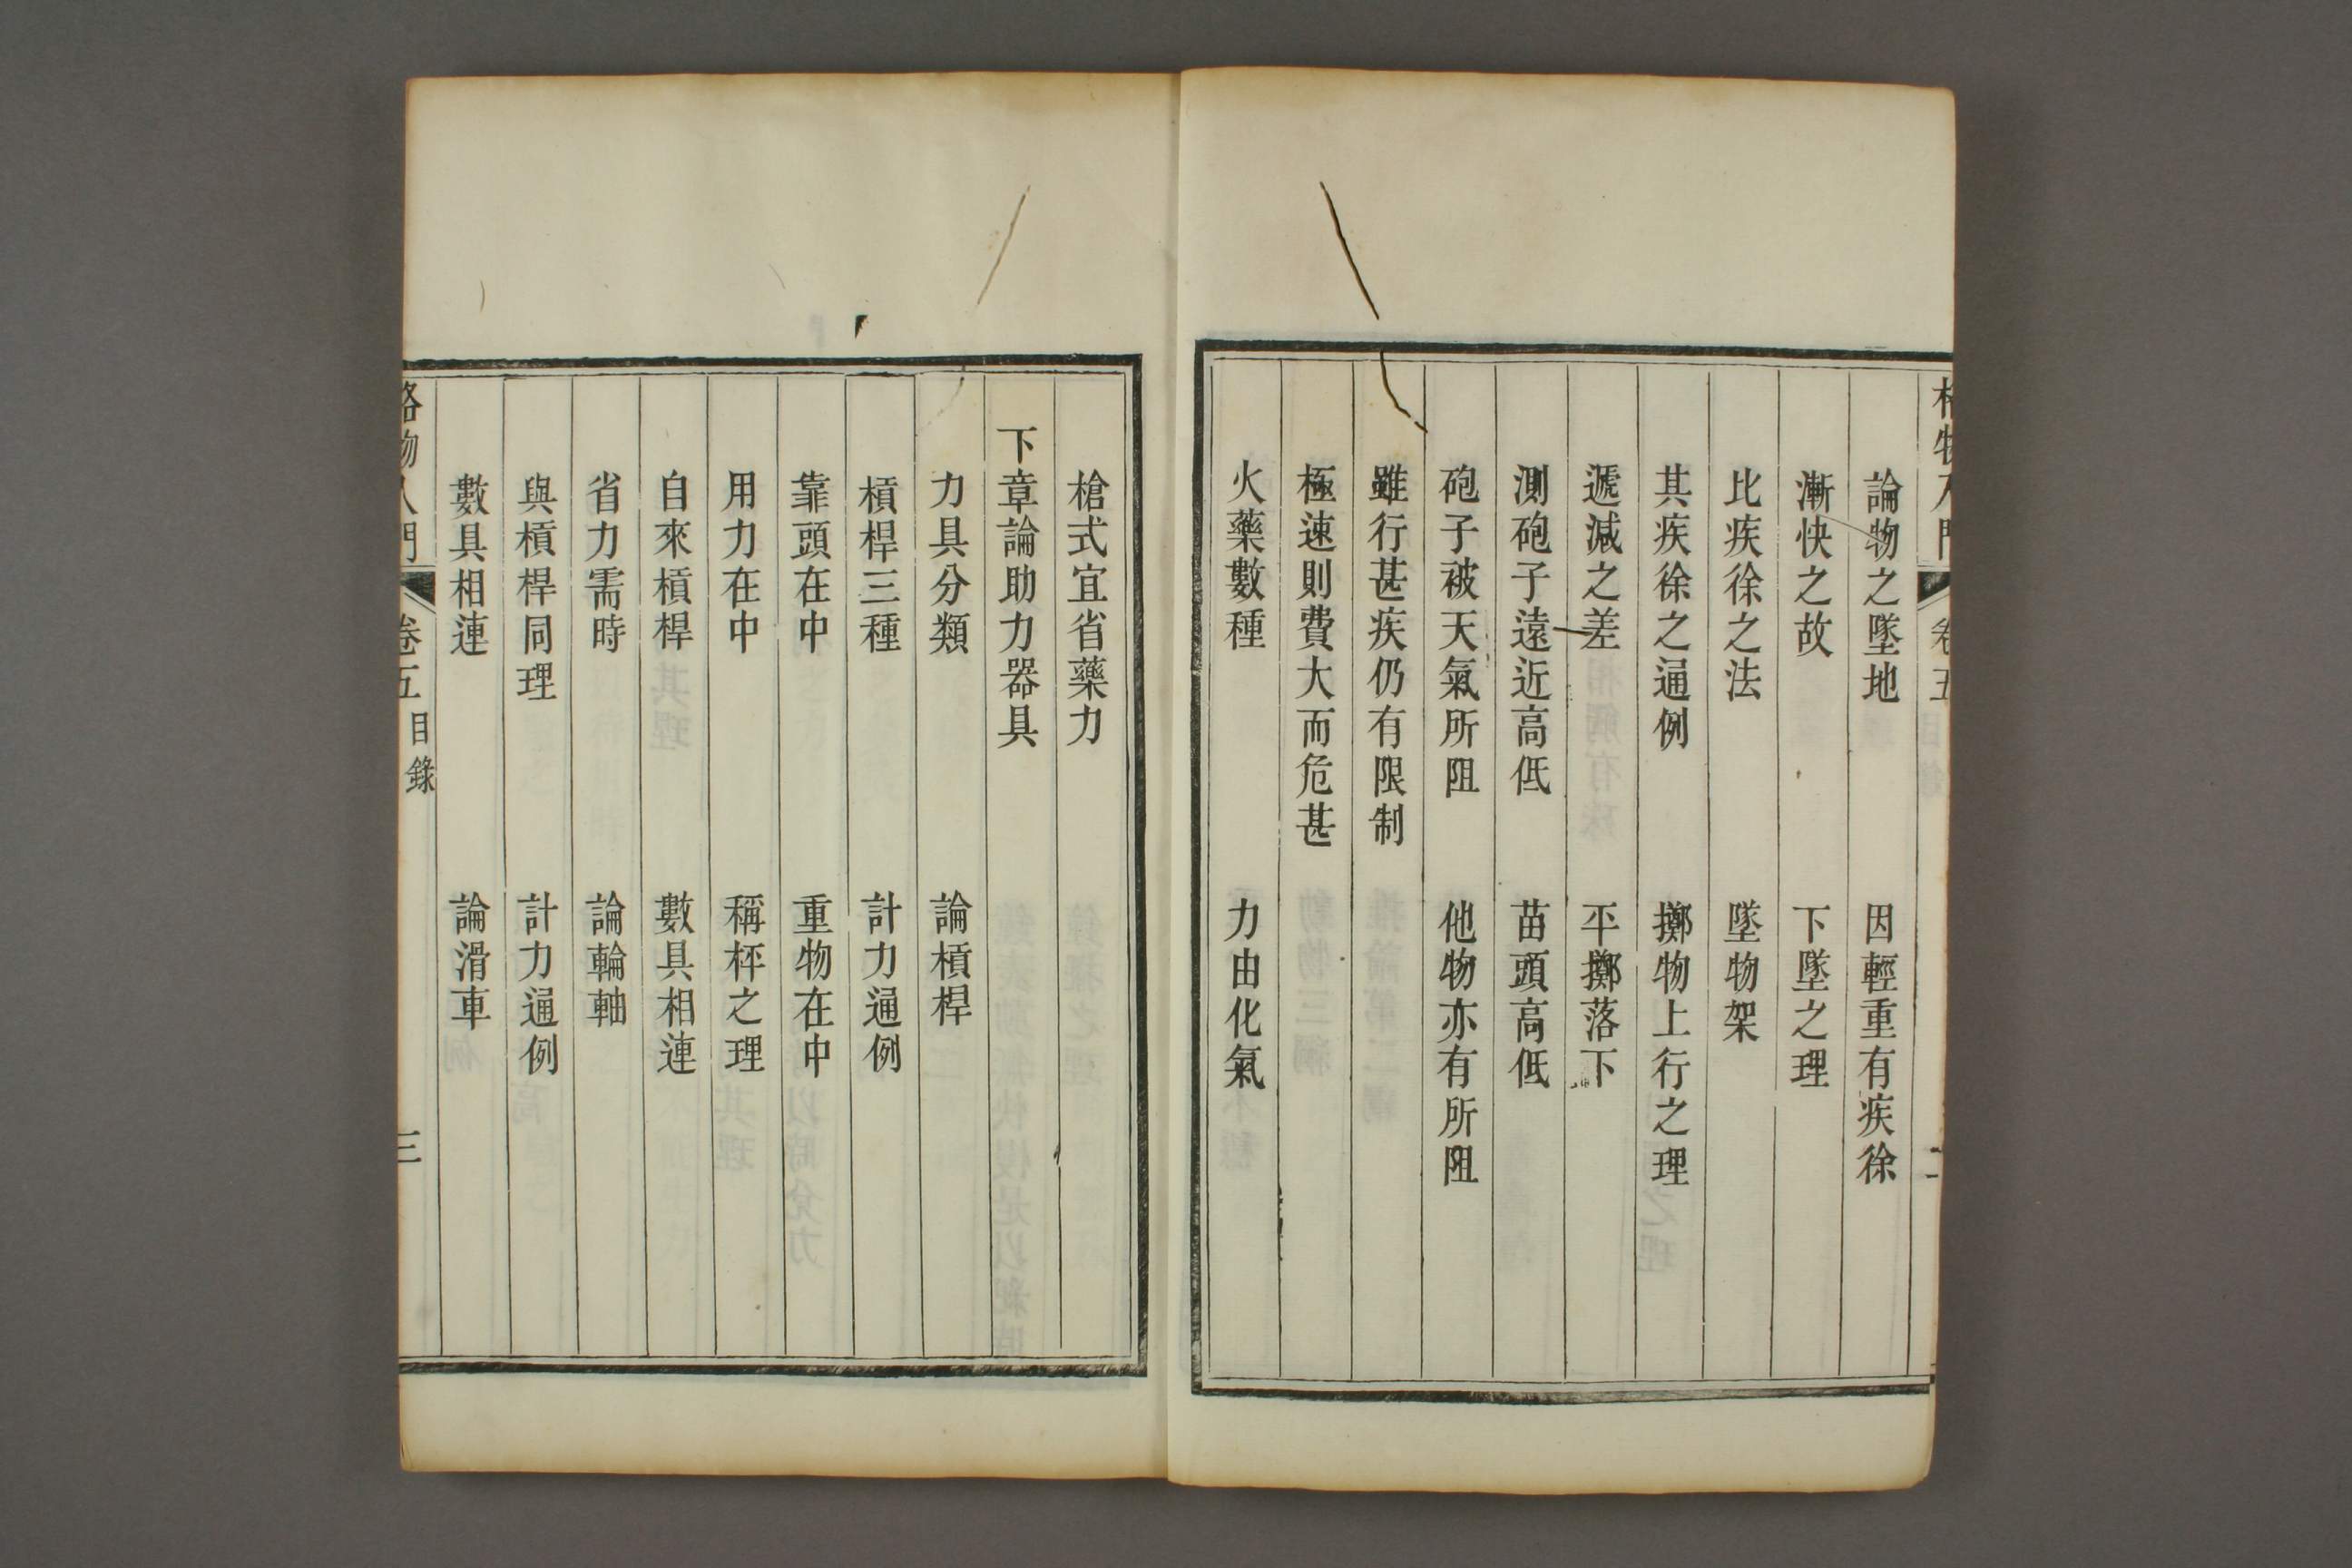 格物入門 卷五
論物之墜地 因輕重有疾徐
漸快之故 下墜之理
比疾徐之法 墜物架
其疾徐之通例 擲物上行之理
遞減之差 平擲落下
測砲子遠近高低 苗頭高低
砲子被天氣所阻 他物亦有所阻
雖行甚疾仍有限制
極速則費大而危甚
火藥數種 力由化氣
槍式宜省藥力
下章論助力器具
力具分類 論槓桿
槓桿三種 計力通例
靠頭在中 重物在中
用力在中 稱秤之理
自來槓桿 數具相連
省力需時 論輪軸
與槓桿同理 計力通例
數具相連 論滑車
格物入門 卷五 目錄 三